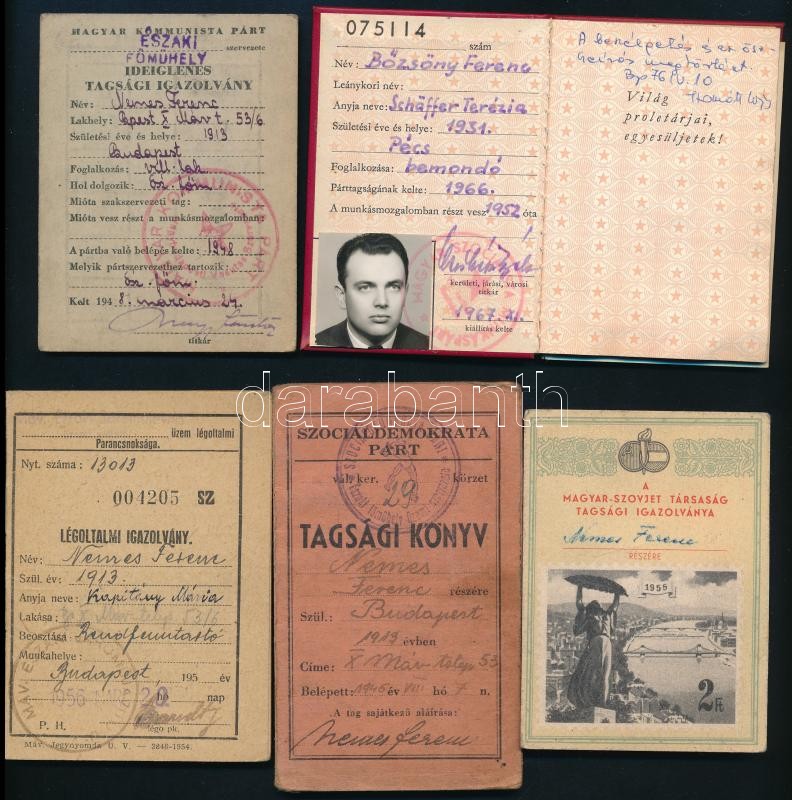 MAGYAR KOMMUNISTA PÁRT
ÉSZAKI szervezete
FŐMŰHELY
IDEIGLENES
TAGSÁGI IGAZOLVÁNY
Név: Nemes Ferenc
Lakhely: Bpest X Máv t. 53/6
Születési éve és helye: 1913
Budapest
Foglalkozás: vill. lak.
Hol dolgozik: ész. főm
Mióta szakszervezeti tag:
Mióta vesz részt a munkásmozgalomban:
A pártba való belépés kelte: 1948
Melyik pártszervezethez tartozik:
ész. főm.
Kelt 1948. március 27.
titkár
075114
szám
Név: Bőzsöny Ferenc
Leánykori név:
Anyja neve: Schäffer Terézia
Születési éve és helye: 1931.
Pécs
Foglalkozása: bemondó
Párttagságának kelte: 1966.
A munkásmozgalomban részt vesz 1952 óta
kerületi, járási, városi
titkár
1967. XI.
kiállítás kelte
Bp 76 IV. 10
Világ
proletárjai,
egyesüljetek!
üzem légoltalmi
Parancsnoksága.
Nyt. száma: 13013
004205 SZ
LÉGOLTALMI IGAZOLVÁNY.
Név: Nemes Ferenc
Szül. év: 1913.
Anyja neve: Kapitány Mária
Lakása: 53/6
Beosztása: Rendfenntartó
Munkahelye:
Budapest, 195 év
1956 20 hó nap
P. H.
légó pk.
Máv. Jegynyomda Ü. V. — 3848-1954.
SZOCIÁLDEMOKRATA
PÁRT
vál. ker. 29 körzet
TAGSÁGI KÖNYV
Nemes
Ferenc részére
Szül.: Budapest
1913 évben
Címe: X Máv telep 53
Belépett: 1945 év VIII hó 7 n.
A tag sajátkezű aláírása:
Nemes Ferenc
A
MAGYAR-SZOVJET TÁRSASÁG
TAGSÁGI IGAZOLVÁNYA
Nemes Ferenc
RÉSZÉRE
1955
2 Ft
darabanth